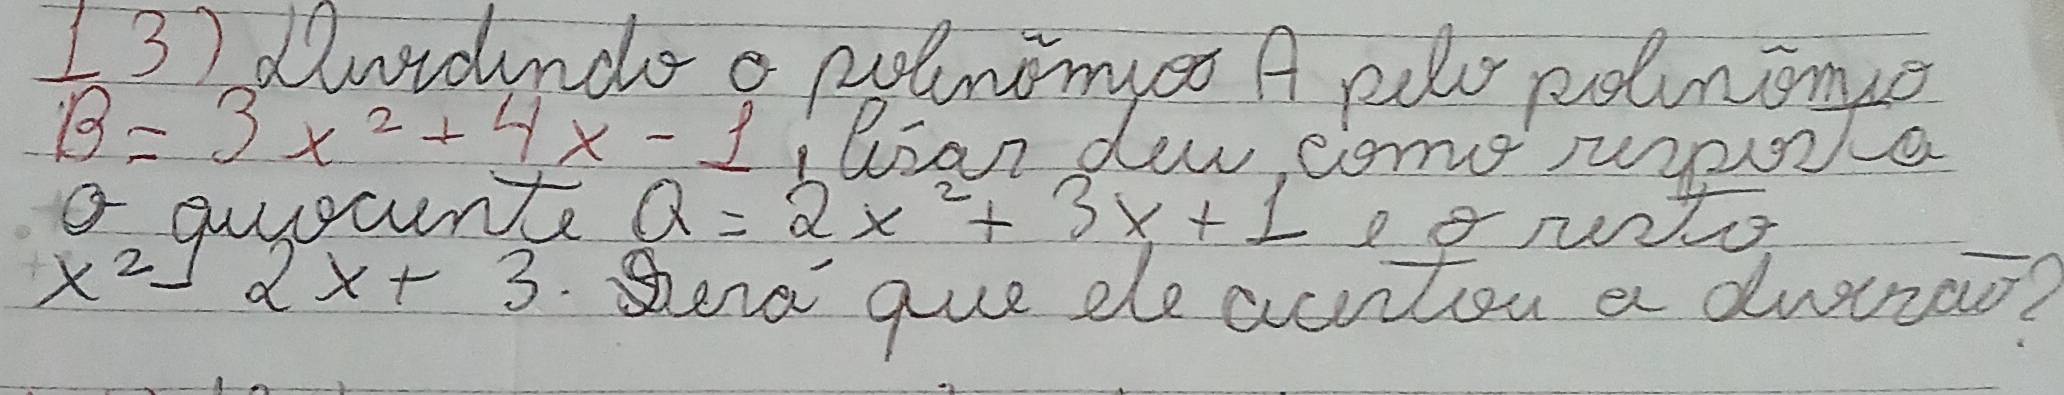 13) Dividindo o polinômio A pelo polinômio
B = 3x² + 4x - 1, César deu como resposta
o quociente Q = 2x² + 3x + 1 e o resto
x² - 2x + 3. Será que ele acertou a divisão?